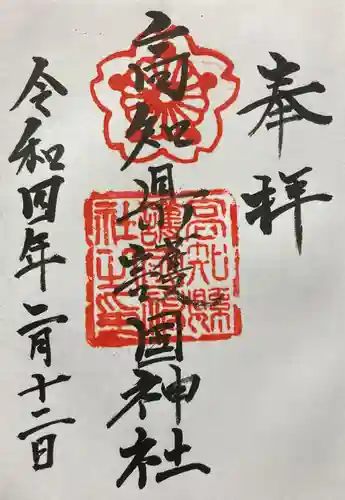 奉拝
高知県護国神社
令和四年二月十二日
高知縣護國神社之印